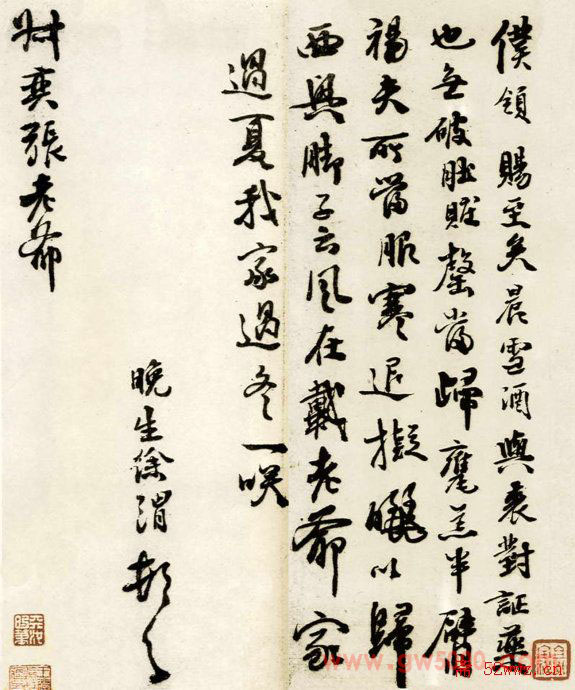 僕領賜至矣晨雪酒與裘對証藥
也無破肚臟罄當歸甕羔半臂非
褐夫所當服寒退擬曬以歸
西興脚子云風在戴老爺家
過夏我家過冬一咲
晚生徐渭頓首
奕張老爺
52wwz.cn